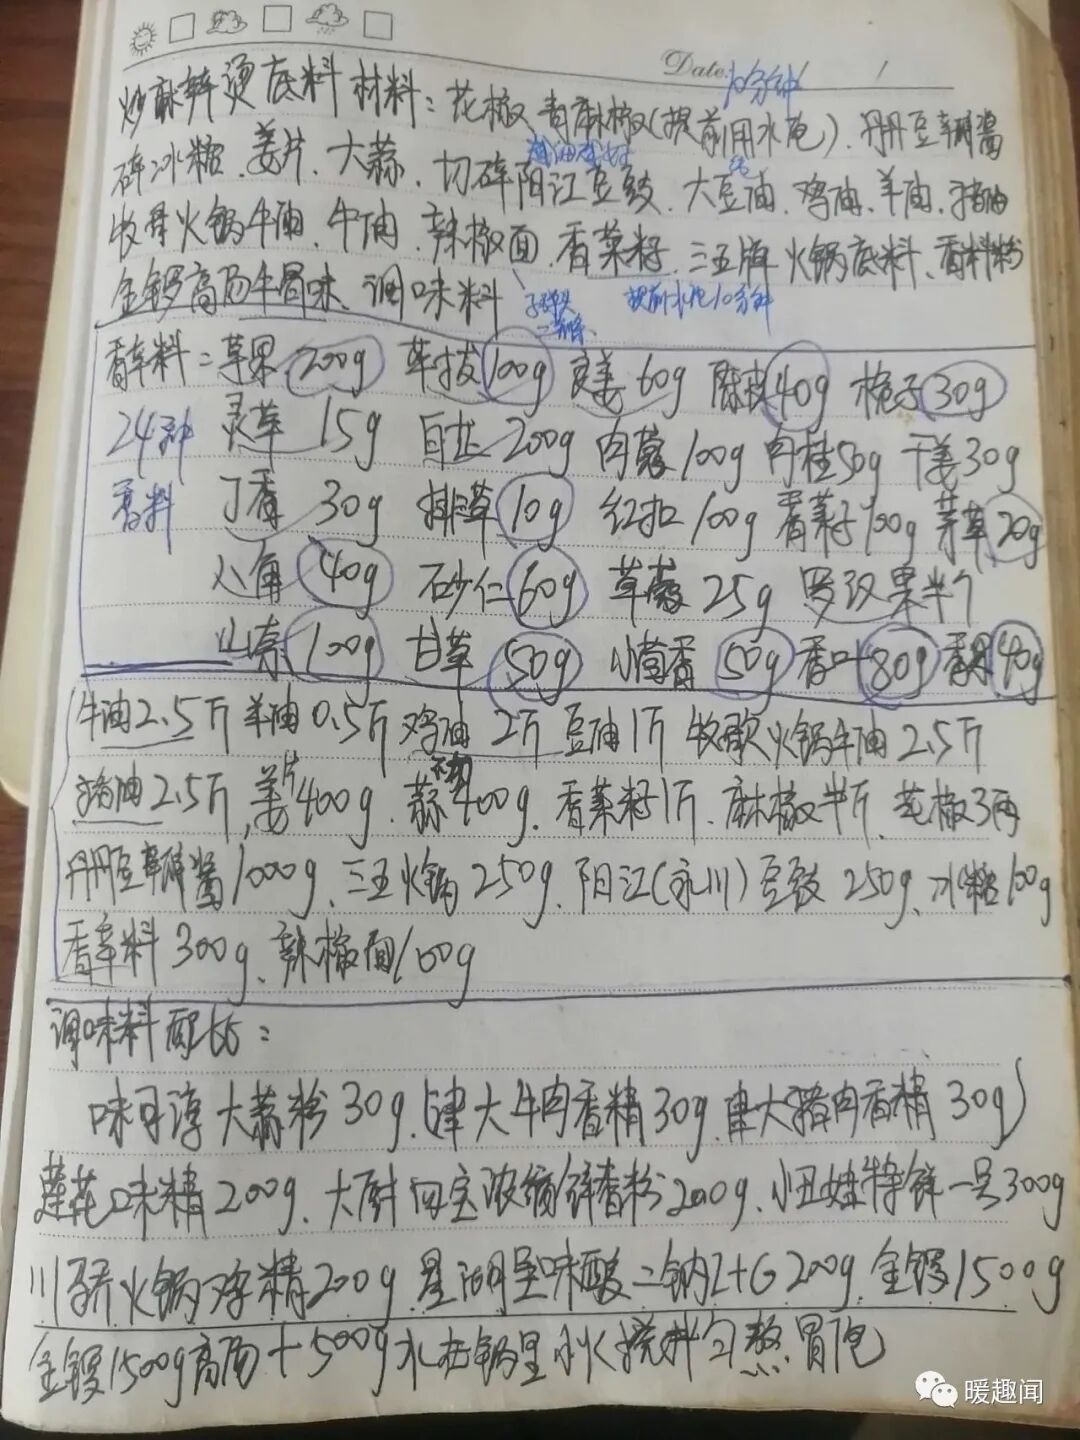 Date:
10分钟
炒麻辣烫底料材料:花椒、青麻椒(提前用水泡)、丹丹豆瓣酱
碎冰糖、姜片、大蒜、切碎阳江豆豉、大豆油、鸡油、羊油、猪油
牧哥火锅牛油、牛油、辣椒面、香菜籽、三五牌火锅底料、香料粉
金锣高汤牛骨味、调味料
子弹头
提前水泡10分钟
香辛料:草果200g 荜拔100g 良姜60g 陈皮40g 栀子30g
24种 灵草15g 白芷200g 肉蔻100g 肉桂50g 干姜30g
香料 丁香30g 排草10g 红扣100g 香菜子100g 茅草20g
八角40g 砂仁60g 草蔻25g 罗汉果半个
山奈100g 甘草50g 小茴香50g 香叶80g 香果40g
牛油2.5斤 羊油0.5斤 鸡油2斤 豆油1斤 牧歌火锅牛油2.5斤
猪油2.5斤,姜片400g、蒜400g、香菜籽1斤、麻椒半斤、花椒3两
丹丹豆瓣酱1000g、三五火锅250g、阳江(永川)豆豉250g、冰糖100g
香辛料300g、辣椒面100g
调味料配比:
味可淳大蒜粉30g(津大牛肉香精30g、津大猪肉香精30g)
莲花味精200g、大厨四宝浓缩鲜香粉200g、小丑娃特鲜一号300g
川骄火锅鸡精200g、星湖呈味酸二钠I+G200g、金锣1500g
金锣1500g高汤+500g水在锅里小火搅拌匀熬冒泡
暖趣闻